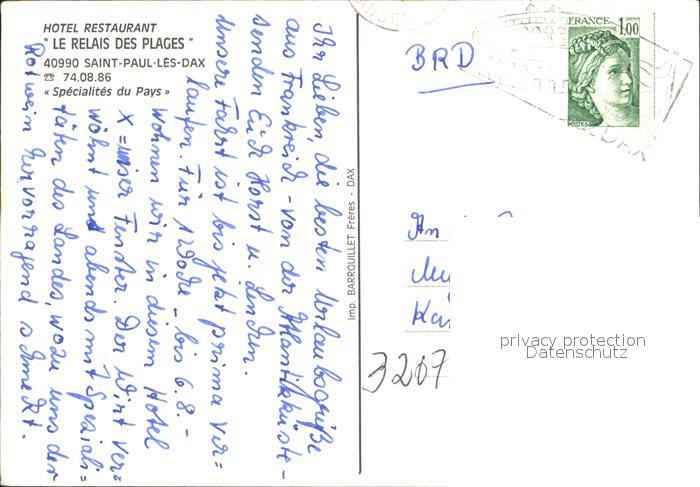 HOTEL RESTAURANT
" LE RELAIS DES PLAGES "
40990 SAINT-PAUL-LÈS-DAX
☎ 74.08.86
« Spécialités du Pays »
Ihr Lieben, die besten Urlaubsgrüße
aus Frankreich - von der Atlantikküste -
senden Euch Horst u. Linchen.
Unsere Fahrt ist bis jetzt prima ver=
laufen. Für 1 Woche - bis 6.8. -
wohnen wir in diesem Hotel
X = unser Fenster. Der Wirt ver=
wöhnt uns abends mit Speziali=
täten des Landes, wozu uns der
Rotwein hervorragend schmeckt.
Imp. BARROUILLET Frères - DAX
BRD
FRANCE 1,00
POSTES
DAX
An
3207
privacy protection
Datenschutz